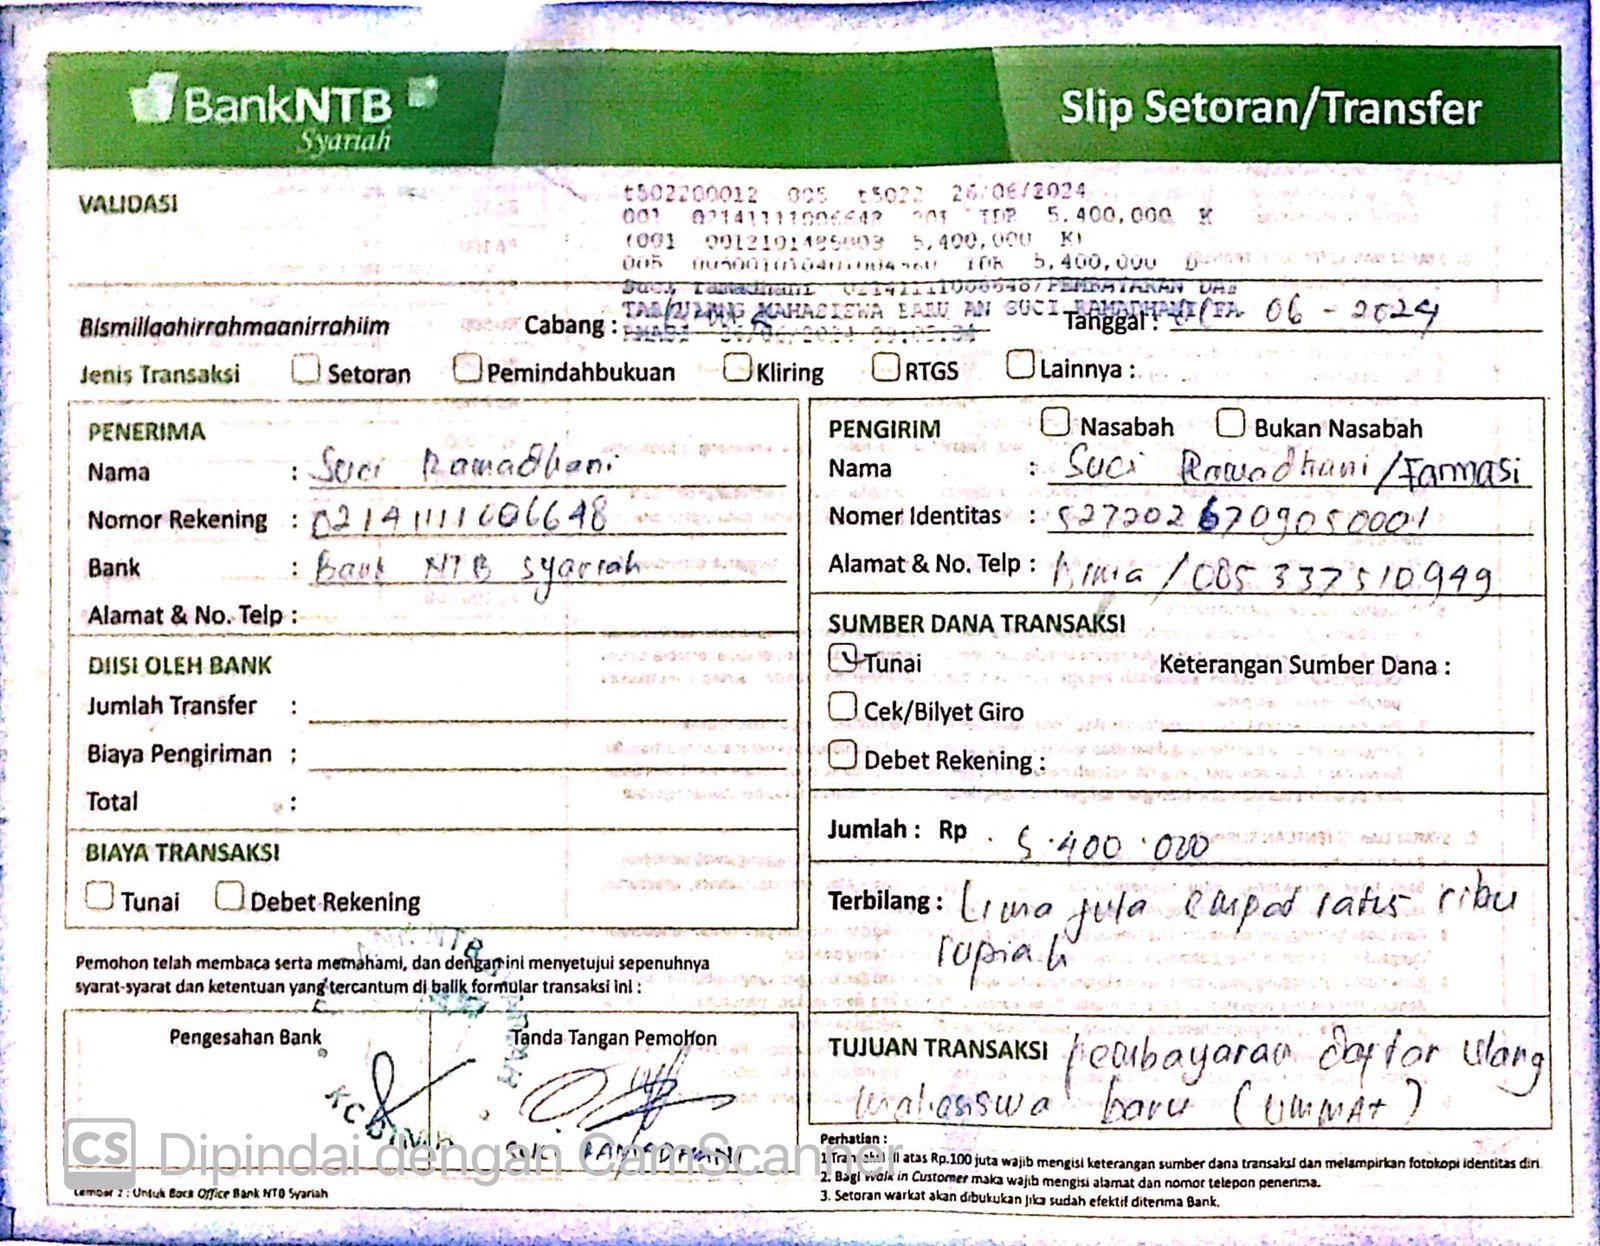 BankNTB
Syariah
Slip Setoran/Transfer
VALIDASI
t502200012 005 t5022 26/06/2024
001 02141111006648 001 IDR 5.400,000 K
(001 0012101485003 5,400,000 K)
005 IDR 5,400,000 D
Suci ramadhani 02141111006648/PEMBAYARAN DAF
TAR ULANG MAHASISWA BARU AN SUCI RAMADHANI/FA
RMASI 26/06/2024
Bismillaahirrahmaanirrahiim
Cabang :
Tanggal : 06 - 2024
Jenis Transaksi Setoran Pemindahbukuan Kliring RTGS Lainnya :
PENERIMA
Nama : Suci Ramadhani
Nomor Rekening : 02141111006648
Bank : Bank NTB Syariah
Alamat & No. Telp :
DIISI OLEH BANK
Jumlah Transfer :
Biaya Pengiriman :
Total :
BIAYA TRANSAKSI
Tunai Debet Rekening
PENGIRIM Nasabah Bukan Nasabah
Nama : Suci Ramadhani/Farmasi
Nomer Identitas : 5272026709050001
Alamat & No. Telp : Bima / 085 337 510 949
SUMBER DANA TRANSAKSI
Tunai Keterangan Sumber Dana :
Cek/Bilyet Giro
Debet Rekening :
Jumlah : Rp . 5.400.000
Terbilang : Lima juta empat ratus ribu
rupiah
TUJUAN TRANSAKSI pembayaran daftar ulang
mahasiswa baru (UMMAT)
Pemohon telah membaca serta memahami, dan dengan ini menyetujui sepenuhnya
syarat-syarat dan ketentuan yang tercantum di balik formular transaksi ini :
Pengesahan Bank
Tanda Tangan Pemohon
BANK NTB SYARIAH
KC BIMA
SUCI RAMADHANI
Perhatian :
1. Transaksi di atas Rp.100 juta wajib mengisi keterangan sumber dana transaksi dan melampirkan fotokopi identitas diri.
2. Bagi Walk in Customer maka wajib mengisi alamat dan nomor telepon penerima.
3. Setoran warkat akan dibukukan jika sudah efektif diterima Bank.
Lembar 2 : Untuk Back Office Bank NTB Syariah
CS Dipindai dengan CamScanner